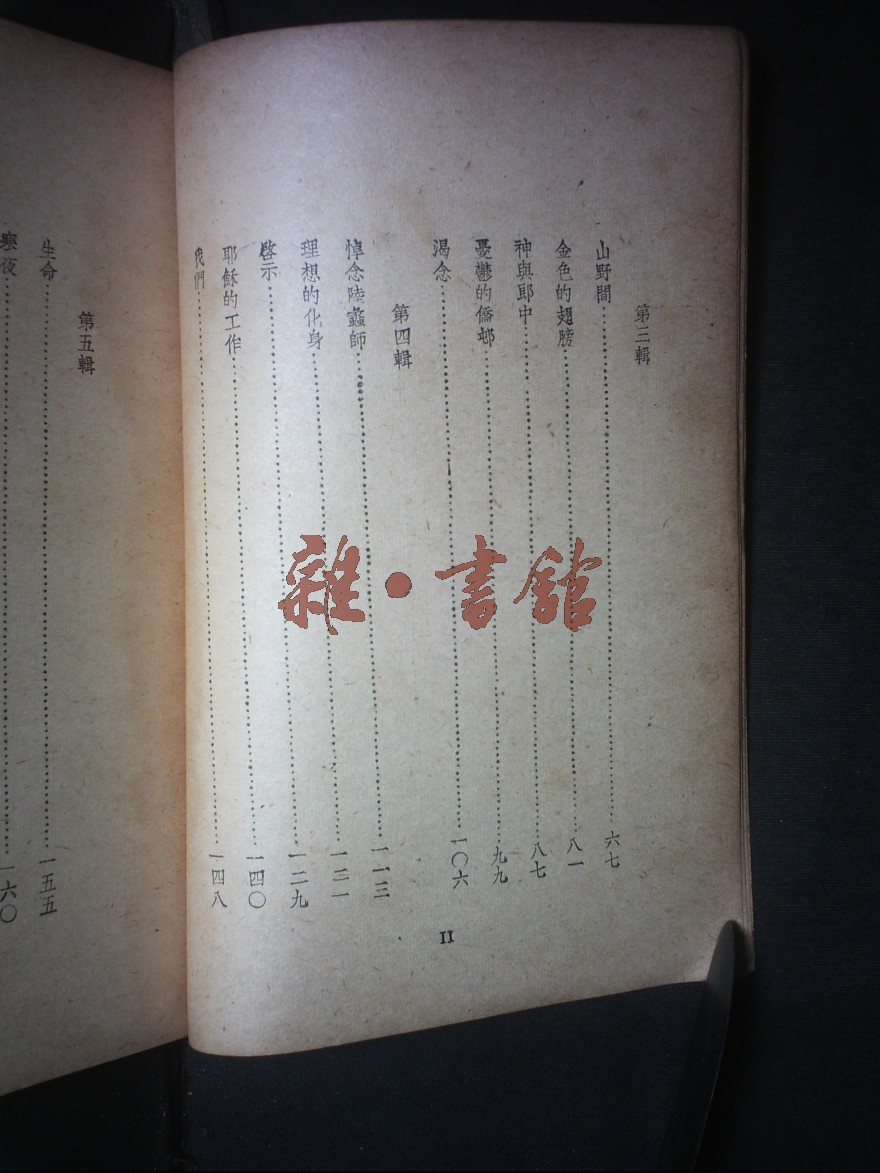 第三輯
山野間 六七
金色的翅膀 八一
神與郎中 八七
憂鬱的僑邨 九九
渴念 一〇六
第四輯
悼念陸蠡師 一一三
理想的化身 一二一
啓示 一二九
耶穌的工作 一四〇
我們 一四八
II
第五輯
生命 一五五
寒夜 一六〇
雜·書館